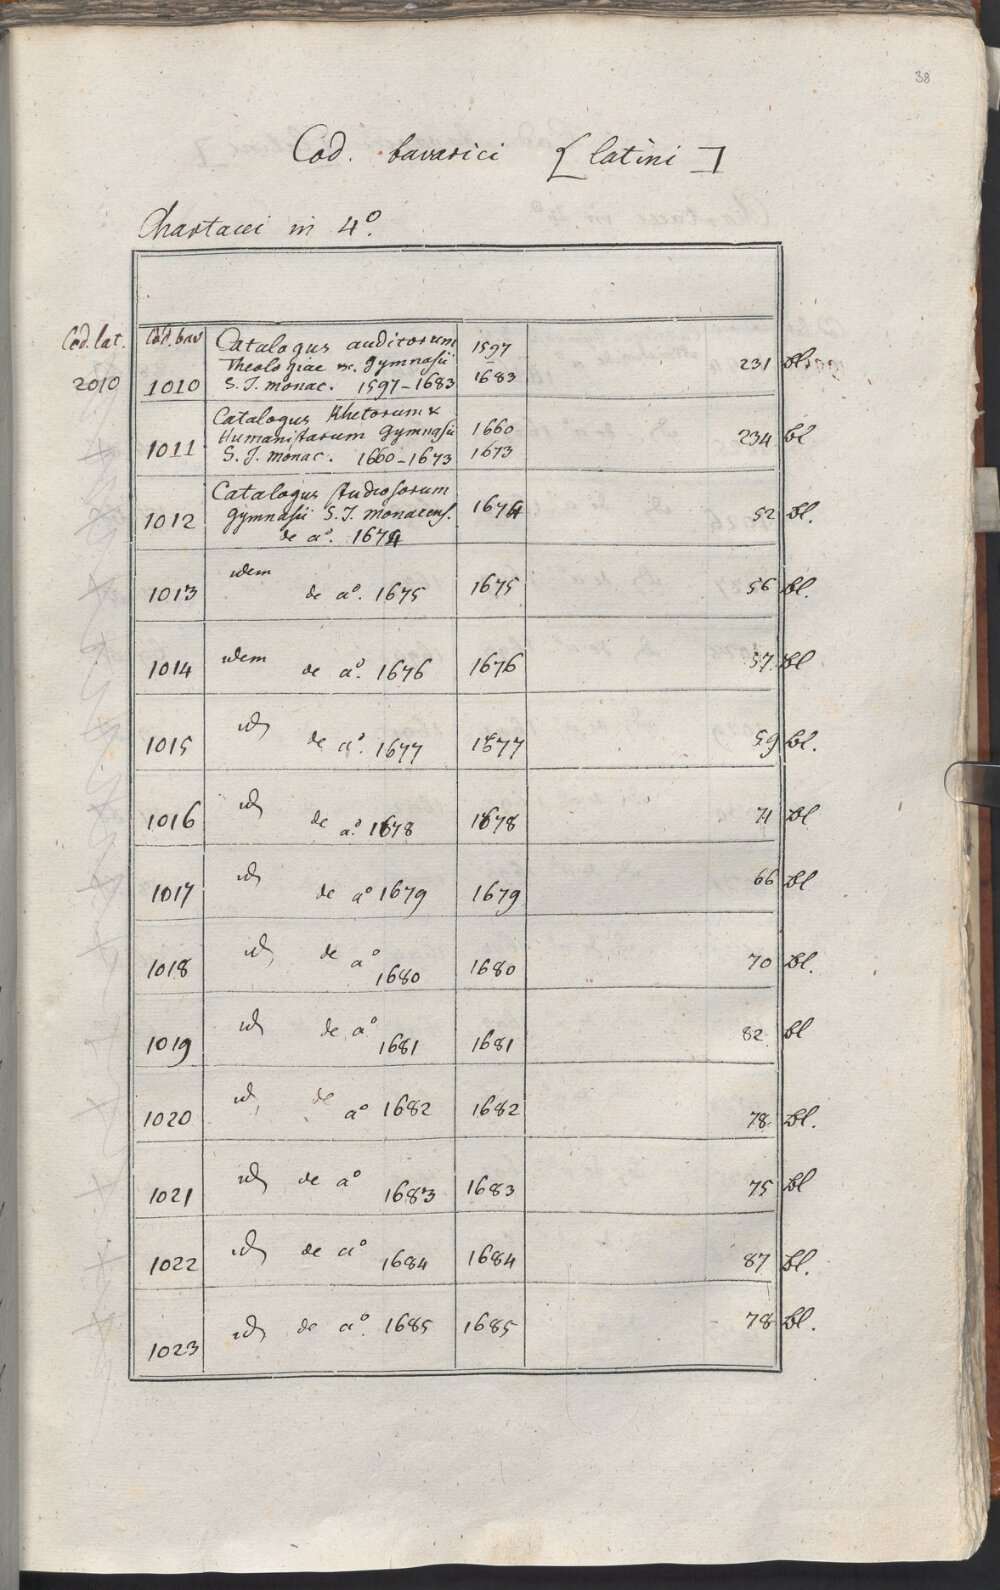 38
Cod. bavarici [latini]
Chartacei in 4°.
Cod. lat. Cod. bav Catalogus auditorum 1597
2010 1010 Theologiae &c. Gymnasii 231 Bl.
S. J. monac. 1597-1683 1683
Catalogus Rhetorum &
1011 Humanistarum Gymnasii 1660 234 Bl
S. J. monac. 1660-1673 1673
Catalogus studiosorum
1012 Gymnasii S. J. monacens. 1674 52 Bl.
de a°. 1674
1013 idem de a°. 1675 1675 56 Bl.
1014 idem de a°. 1676 1676 57. Bl
1015 id. de a°. 1677 1677 59 Bl.
1016 id. de a°. 1678 1678 71 Bl
1017 id. de a° 1679 1679 66 Bl
1018 id. de a° 1680 1680 70 Bl.
1019 id. de a° 1681 1681 82 Bl
1020 id. de a° 1682 1682 78. Bl.
1021 id. de a° 1683 1683 75 Bl
1022 id. de a° 1684 1684 87 Bl.
1023 id. de a°. 1685 1685 78 Bl.